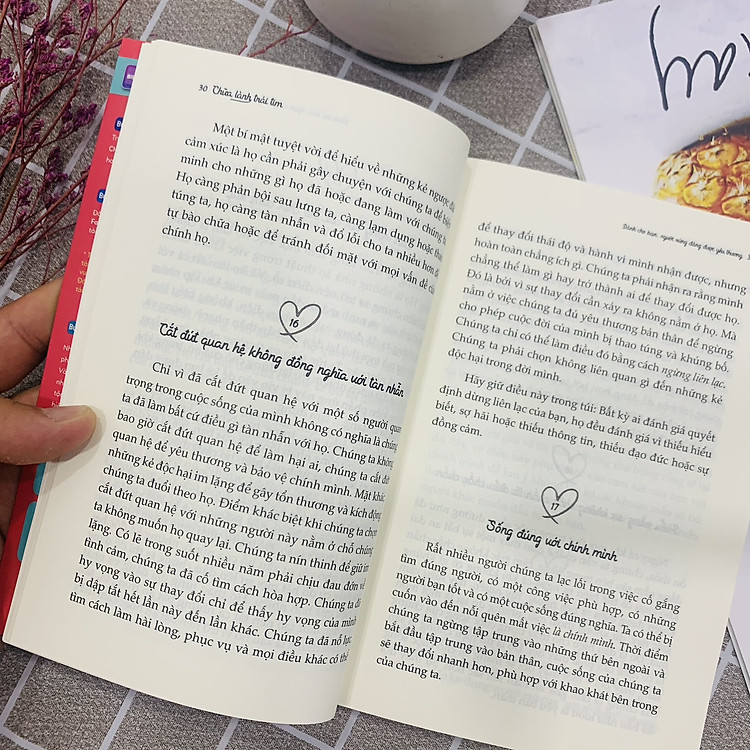 30 Chữa lành trái tim
Một bí mật tuyệt vời để hiểu về những kẻ ngược đãi
cảm xúc là họ cần phải gây chuyện với chúng ta để biện
minh cho những gì họ đã hoặc đang làm với chúng ta.
Họ càng phản bội sau lưng ta, càng lạm dụng hoặc thao
túng ta, họ càng tàn nhẫn và đổ lỗi cho ta nhiều hơn để
tự bào chữa hoặc để tránh đối mặt với mọi vấn đề của
chính họ.
16
Cắt đứt quan hệ không đồng nghĩa với tàn nhẫn
Chỉ vì đã cắt đứt quan hệ với một số người quan
trọng trong cuộc sống của mình không có nghĩa là chúng
ta đã làm bất cứ điều gì tàn nhẫn với họ. Chúng ta không
bao giờ cắt đứt quan hệ để làm hại ai, chúng ta cắt đứt
quan hệ để yêu thương và bảo vệ chính mình. Mặt khác
những kẻ độc hại im lặng để gây tổn thương và kích động
chúng ta đuổi theo họ. Điểm khác biệt khi chúng ta chọn
cắt đứt quan hệ với những người này nằm ở chỗ chúng
ta không muốn họ quay lại. Chúng ta nín thinh để giữ im
lặng. Có lẽ trong suốt nhiều năm phải chịu đau đớn về
tình cảm, chúng ta đã cố tìm cách hòa hợp. Chúng ta đã
hy vọng vào sự thay đổi chỉ để thấy hy vọng của mình
bị dập tắt hết lần này đến lần khác. Chúng ta đã nỗ lực
tìm cách làm hài lòng, phục vụ và mọi điều khác có thể
Dành cho bạn, người xứng đáng được yêu thương
để thay đổi thái độ và hành vi mình nhận được, nhưng
hoàn toàn chẳng ích gì. Chúng ta phải nhận ra rằng mình
chẳng thể làm gì hay trở thành ai để thay đổi được họ.
Đó là bởi vì sự thay đổi cần xảy ra không nằm ở họ. Mà
nằm ở việc chúng ta đủ yêu thương bản thân để ngừng
cho phép cuộc đời của mình bị thao túng và khủng bố.
Chúng ta chỉ có thể làm điều đó bằng cách ngừng liên lạc.
Chúng ta phải chọn không liên quan gì đến những kẻ
độc hại trong đời mình.
Hãy giữ điều này trong túi: Bất kỳ ai đánh giá quyết
định dừng liên lạc của bạn, họ đều đánh giá vì thiếu hiểu
biết, sợ hãi hoặc thiếu thông tin, thiếu đạo đức hoặc sự
đồng cảm.
17
Sống đúng với chính mình
Rất nhiều người chúng ta lạc lối trong việc cố gắng
tìm đúng người, có một công việc phù hợp, có những
người bạn tốt và có một cuộc sống đúng nghĩa. Ta có thể bị
cuốn vào đến nỗi quên mất việc là chính mình. Thời điểm
chúng ta ngừng tập trung vào những thứ bên ngoài và
bắt đầu tập trung vào bản thân, cuộc sống của chúng ta
sẽ thay đổi nhanh hơn, phù hợp với khao khát bên trong
của chúng ta.